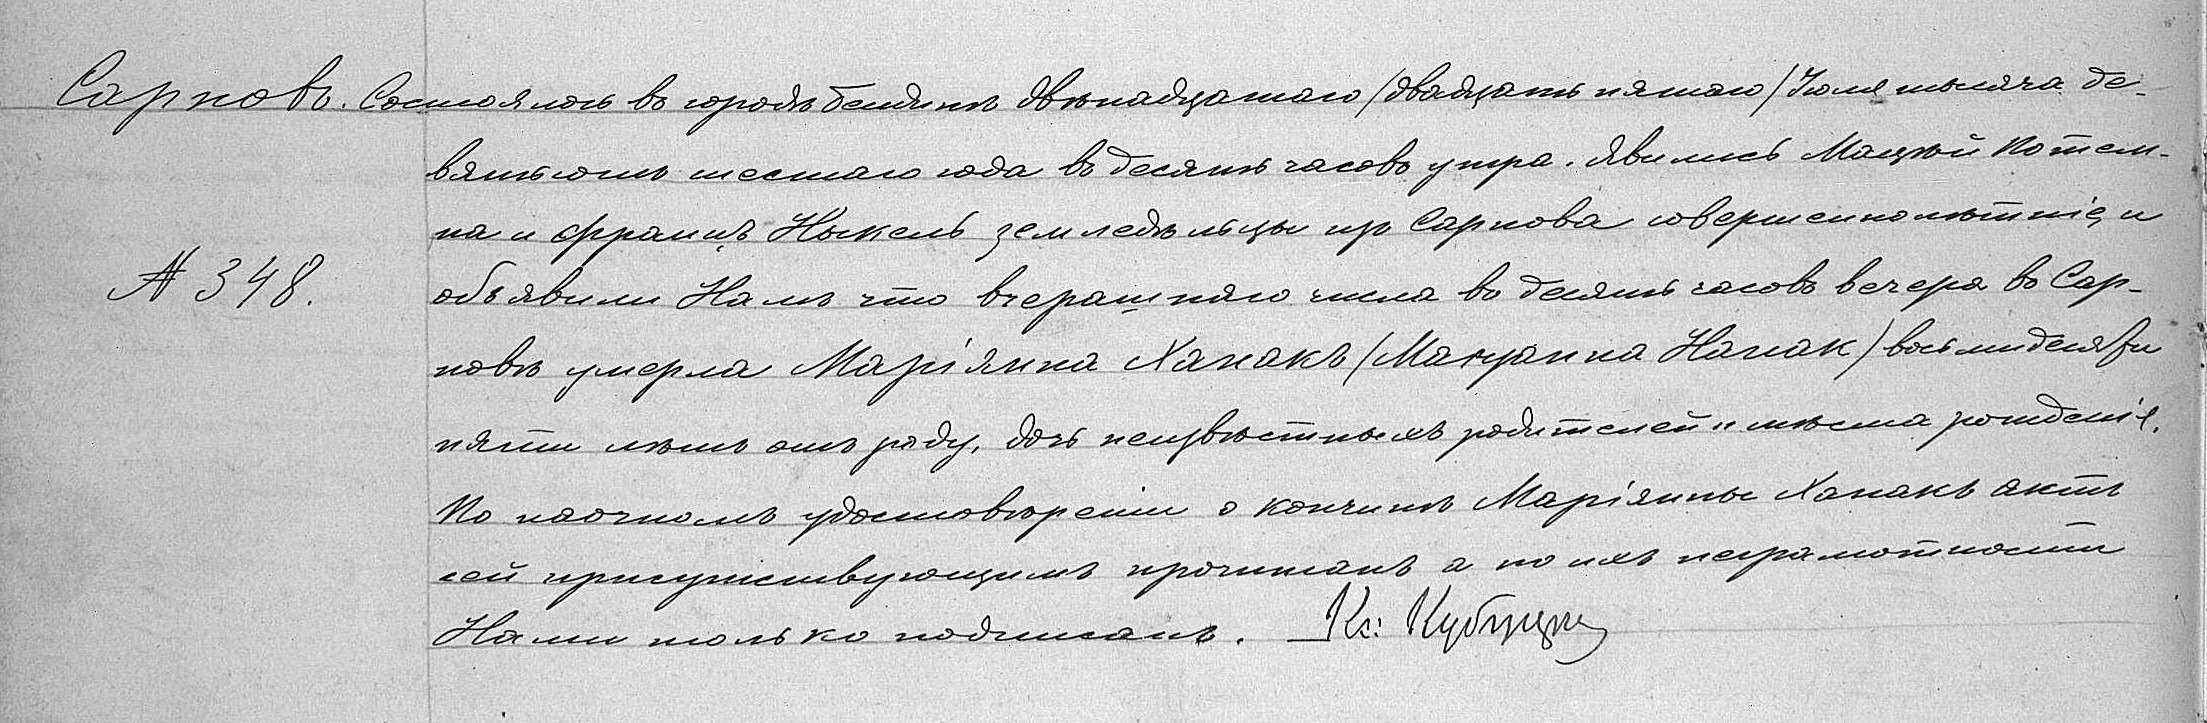 Сарновъ. Состоялось въ городѣ Бендинѣ двѣнадцатаго /двадцать пятаго/ Іюля тысяча де-
вятьсотъ шестаго года въ десять часовъ утра. Явились Мацѣй Котем-
па и Францъ Ныкель земледѣльцы изъ Сарнова совершеннолѣтніе и
№ 348.
объявили Намъ что вчерашняго числа въ десять часовъ вечера въ Сар-
новѣ умерла Маріянна Ханакъ /Maryanna Hanak/ восьмидесяти
пяти лѣтъ отъ роду, дочь неизвѣстныхъ родителей и мѣста рожденія.
По наочномъ удостовѣреніи о кончинѣ Маріянны Ханакъ актъ
сей присутствующимъ прочитанъ а по ихъ неграмотности
Нами только подписанъ. Кс: